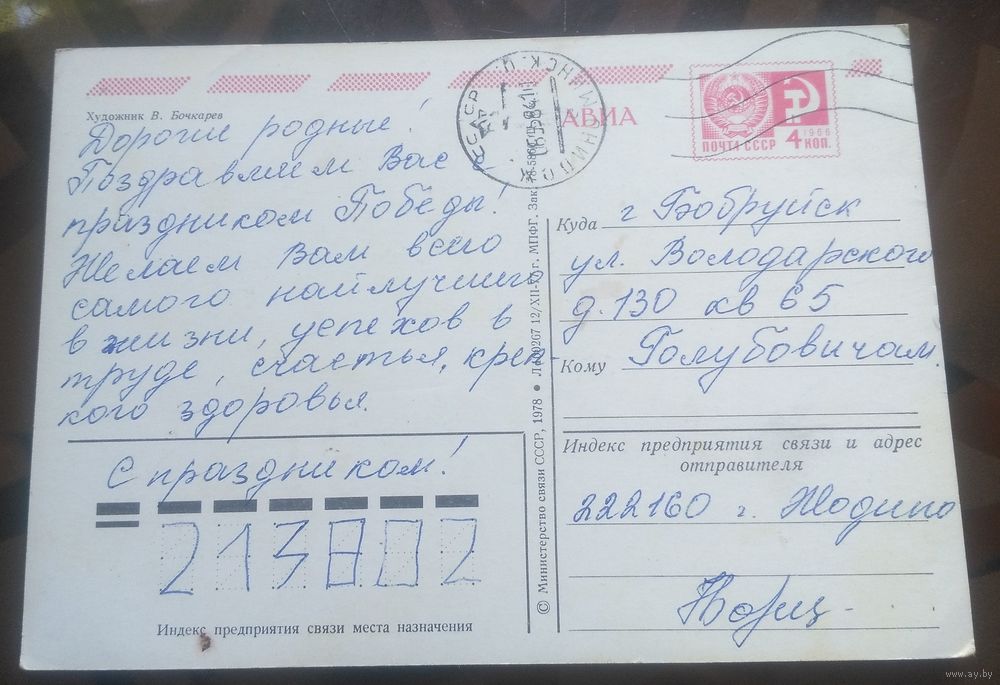 Художник В. Бочкарев
Дорогие родные!
Поздравляем Вас
праздником Победы!
Желаем Вам всего
самого найлучшего
в жизни, успехов в
труде, счастья, креп-
кого здоровья.
С праздником!
213802
Индекс предприятия связи места назначения
© Министерство связи СССР, 1978 •
МПФГ. Зак.
АВИА
ПОЧТА СССР
1966
4 КОП.
Куда г Бобруйск
ул. Володарского
д. 130 кв 65
Кому Голубовичам.
Индекс предприятия связи и адрес
отправителя
222160 г. Жодино
www.ay.by